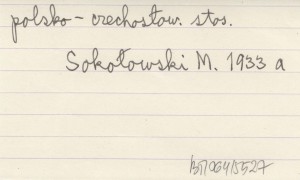 polsko-czechosłow. stos.
Sokołowski M. 1933 a